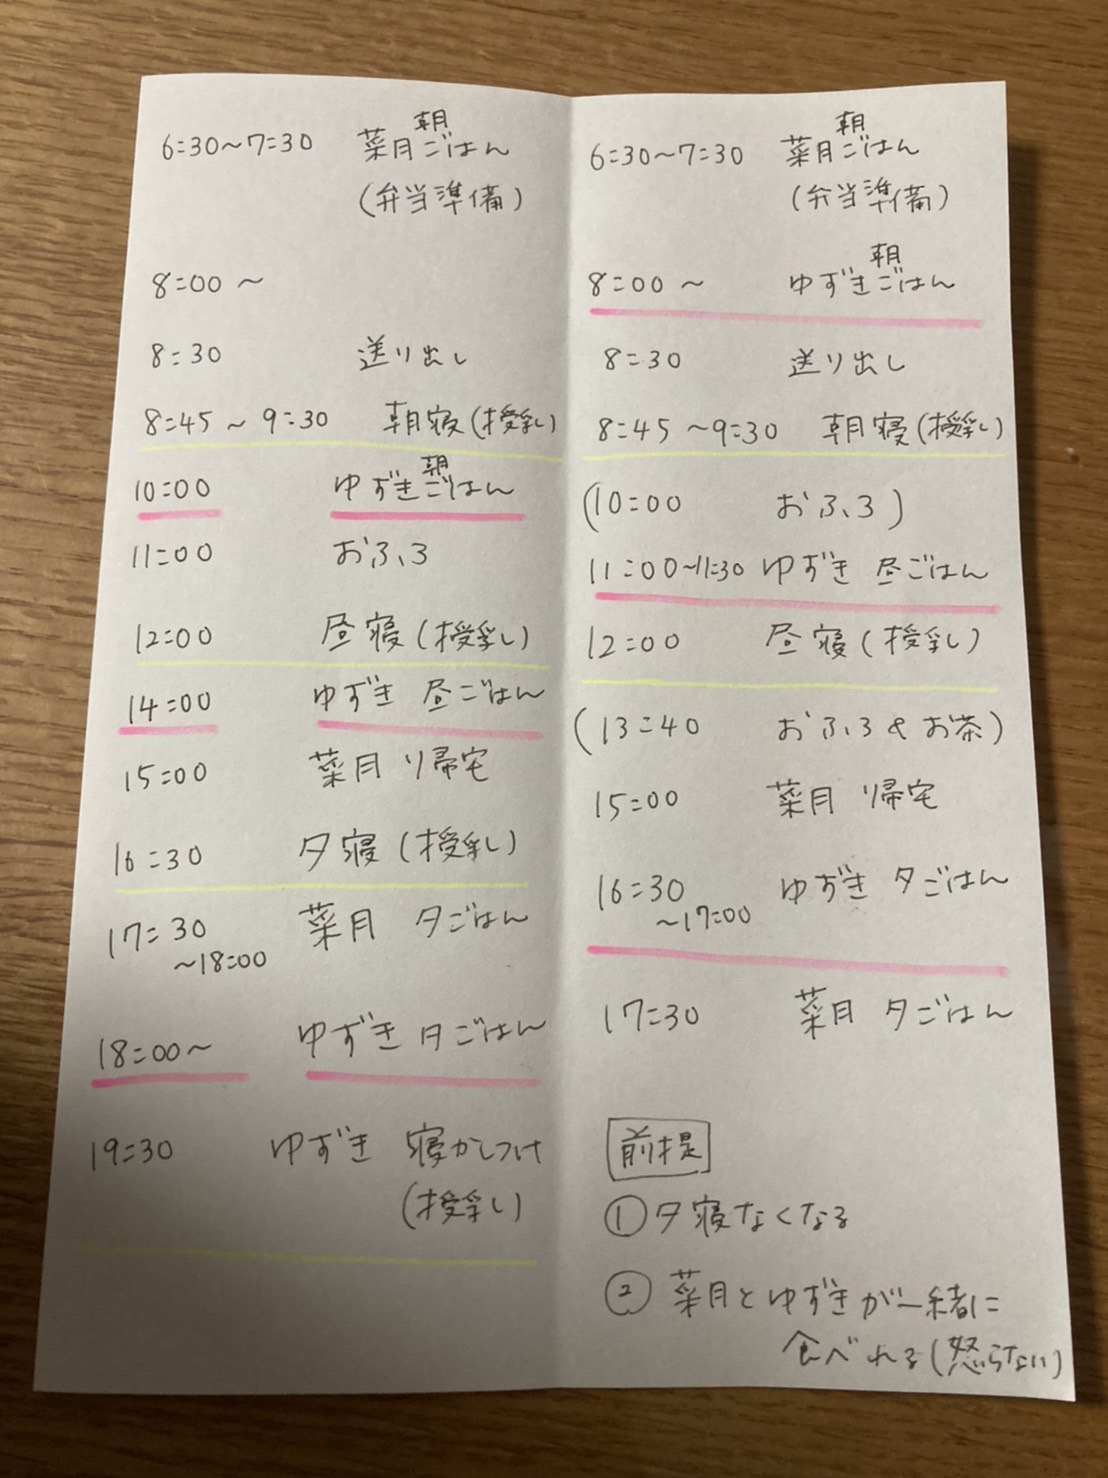 6:30~7:30 菜月朝ごはん
(弁当準備)
8:00~
8:30 送り出し
8:45~9:30 朝寝(授乳)
10:00 ゆずき朝ごはん
11:00 おふろ
12:00 昼寝(授乳)
14:00 ゆずき 昼ごはん
15:00 菜月 帰宅
16:30 夕寝(授乳)
17:30 菜月 夕ごはん
~18:00
18:00~ ゆずき 夕ごはん
19:30 ゆずき 寝かしつけ
(授乳)
6:30~7:30 菜月朝ごはん
(弁当準備)
8:00~ ゆずき朝ごはん
8:30 送り出し
8:45~9:30 朝寝(授乳)
(10:00 おふろ)
11:00~11:30 ゆずき 昼ごはん
12:00 昼寝(授乳)
(13:40 おふろ&お茶)
15:00 菜月 帰宅
16:30 ゆずき 夕ごはん
~17:00
17:30 菜月 夕ごはん
前提
① 夕寝なくなる
② 菜月とゆずきが一緒に
食べれる(怒らない)